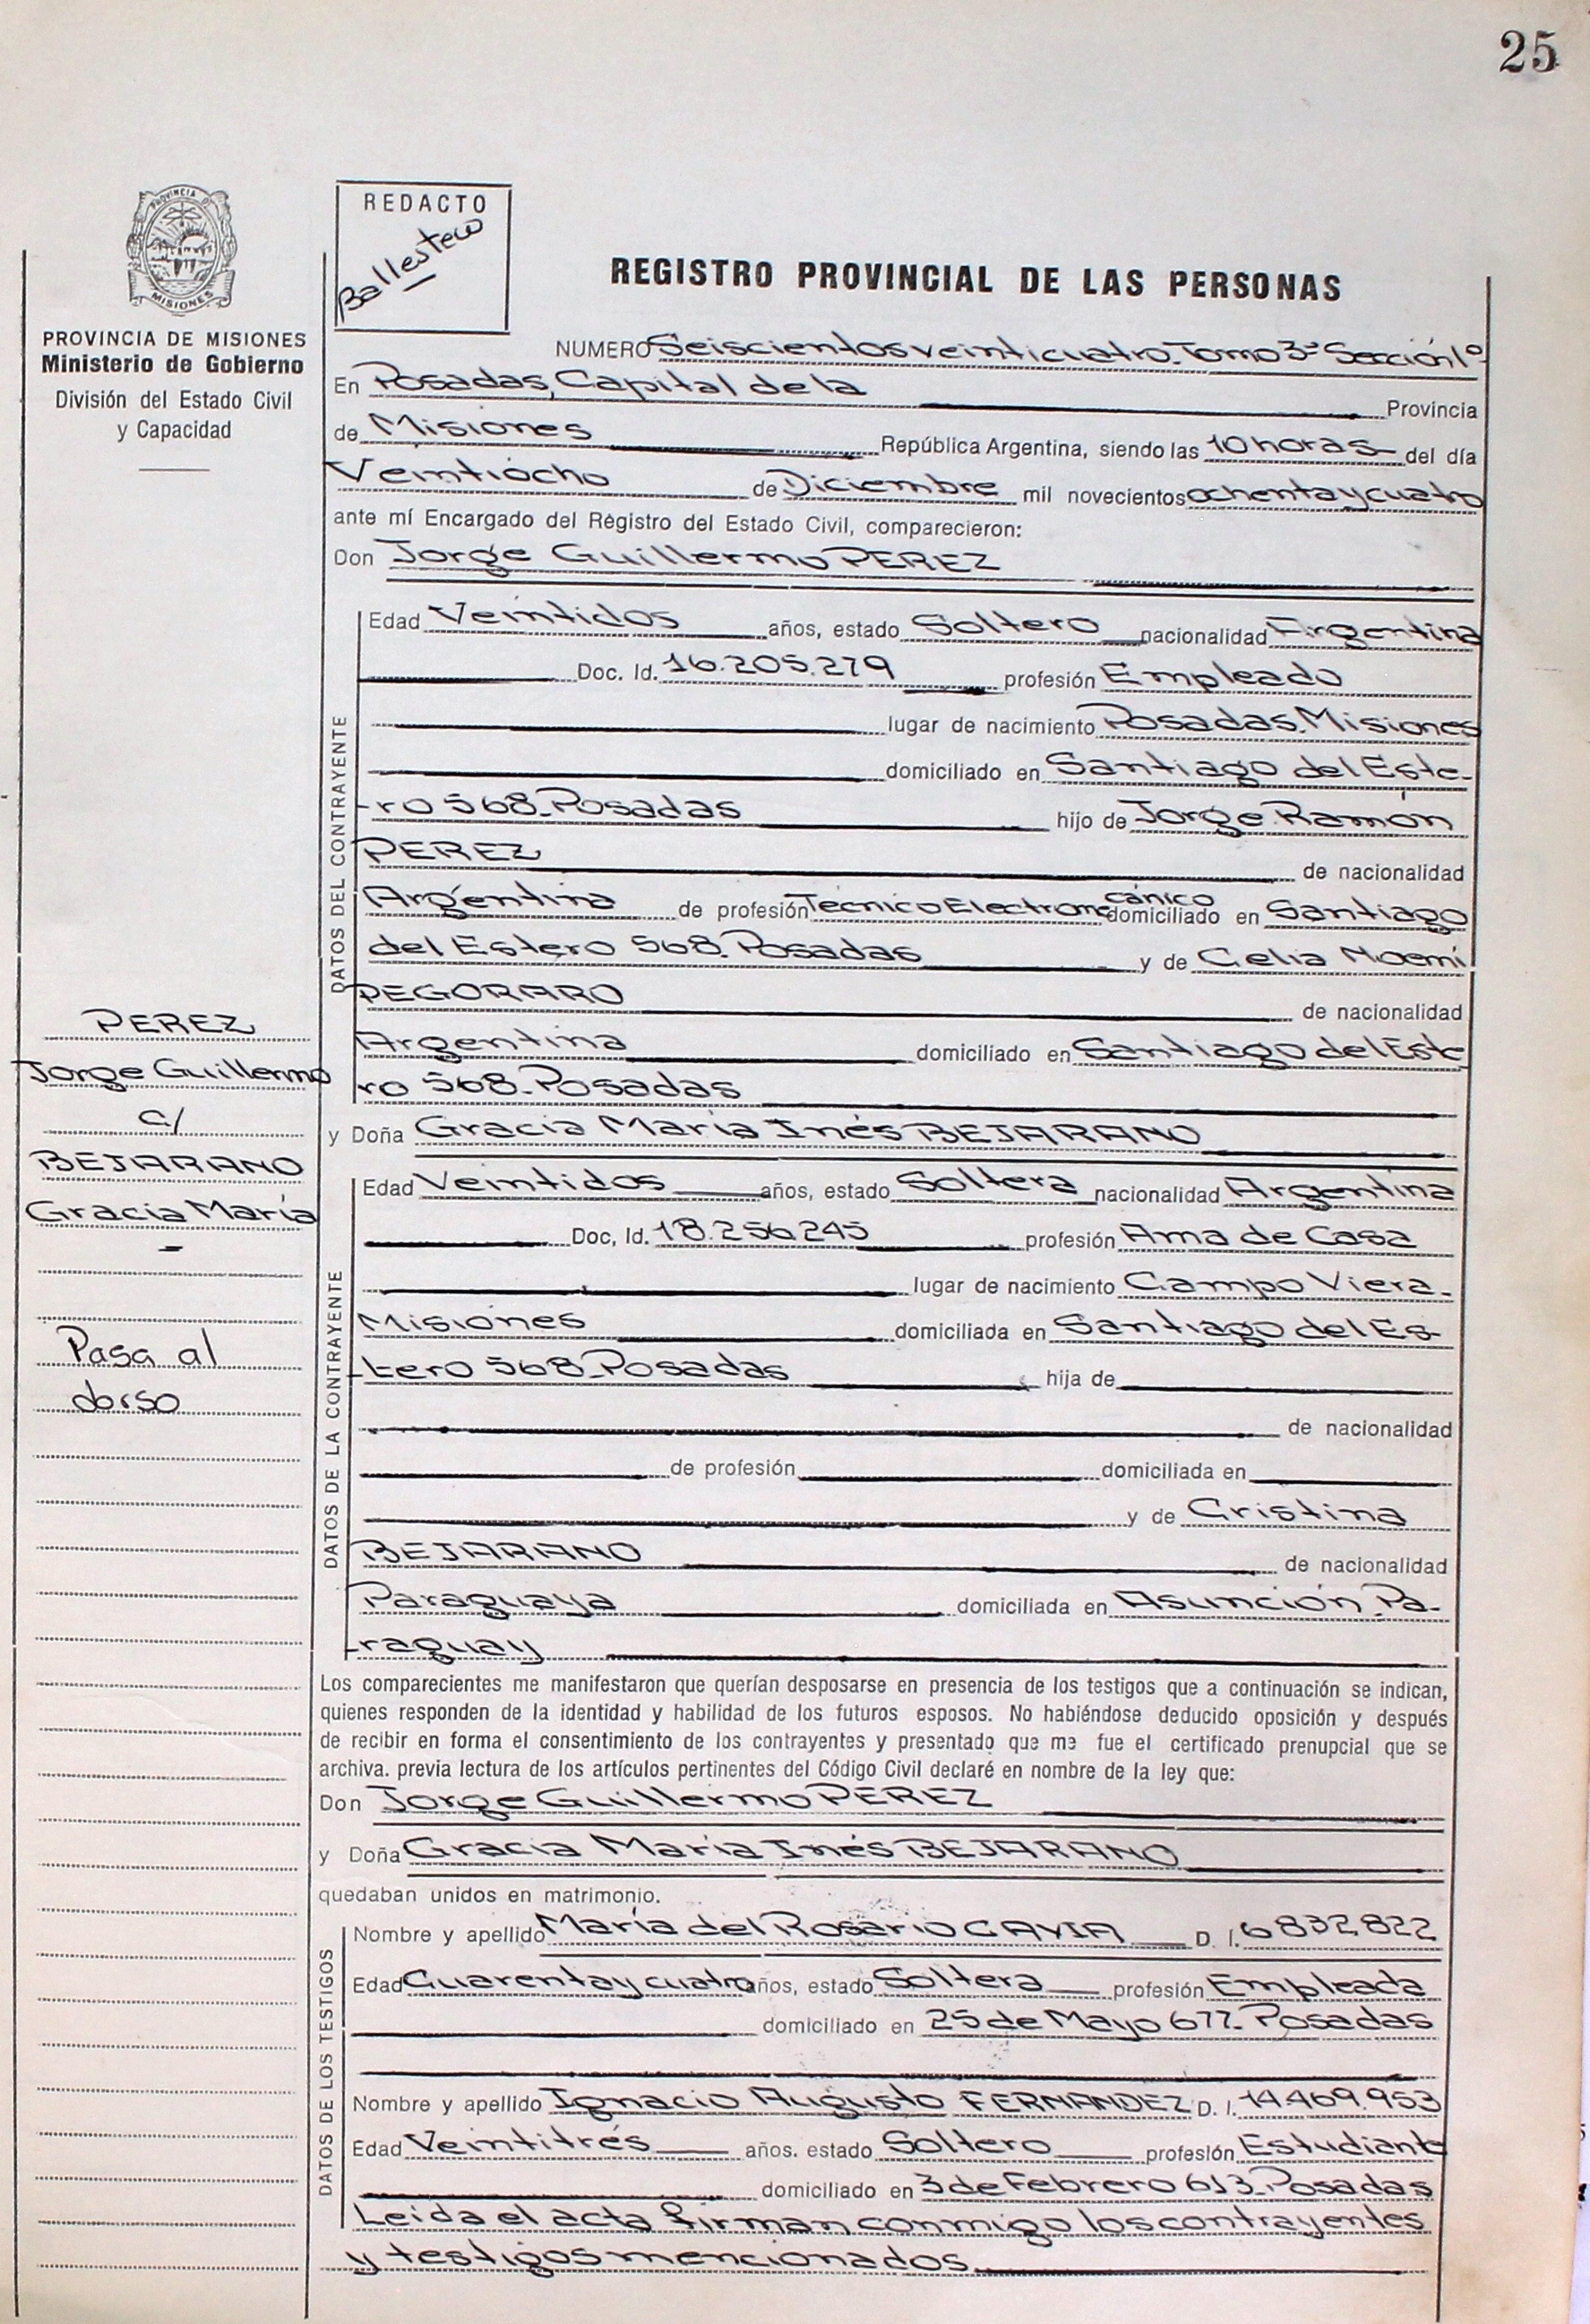 25
PROVINCIA D
MISIONES
PROVINCIA DE MISIONES
Ministerio de Gobierno
División del Estado Civil
y Capacidad
REDACTO
REGISTRO PROVINCIAL DE LAS PERSONAS
NUMERO Seiscientos veinticuatro. Tomo 3º Sección 1º
En Posadas, Capital de la Provincia
de Misiones República Argentina, siendo las 10 horas del día
Veintiocho de Diciembre mil novecientos ochenta y cuatro
ante mí Encargado del Registro del Estado Civil, comparecieron:
Don Jorge Guillermo PEREZ
DATOS DEL CONTRAYENTE
Edad Veintidos años, estado Soltero nacionalidad Argentina
Doc. Id. 16.205.279 profesión Empleado
lugar de nacimiento Posadas. Misiones
domiciliado en Santiago del Este-
-ro 568. Posadas hijo de Jorge Ramón
PEREZ de nacionalidad
Argentina de profesión Técnico Electromecánico domiciliado en Santiago
del Estero 568. Posadas y de Celia Noemí
PEGORARO de nacionalidad
Argentina domiciliado en Santiago del Este
ro 568. Posadas
y Doña Gracia María Inés BEJARANO
DATOS DE LA CONTRAYENTE
Edad Veintidos años, estado Soltera nacionalidad Argentina
Doc, Id. 18.256.245 profesión Ama de Casa
lugar de nacimiento Campo Viera.
Misiones domiciliada en Santiago del Es-
-tero 568. Posadas hija de
de nacionalidad
de profesión domiciliada en
y de Cristina
BEJARANO de nacionalidad
Paraguaya domiciliada en Asunción. Pa-
-raguay
Los comparecientes me manifestaron que querían desposarse en presencia de los testigos que a continuación se indican,
quienes responden de la identidad y habilidad de los futuros esposos. No habiéndose deducido oposición y después
de recibir en forma el consentimiento de los contrayentes y presentado que me fue el certificado prenupcial que se
archiva. previa lectura de los artículos pertinentes del Código Civil declaré en nombre de la ley que:
Don Jorge Guillermo PEREZ
y Doña Gracia María Inés BEJARANO
quedaban unidos en matrimonio.
DATOS DE LOS TESTIGOS
Nombre y apellido María del Rosario GAVIA D. I. 6832822
Edad Cuarenta y cuatro años, estado Soltera profesión Empleada
domiciliado en 25 de Mayo 677. Posadas
Nombre y apellido Ignacio Augusto FERNANDEZ D. I. 14.469.953
Edad Veintitrés años. estado Soltero profesión Estudiante
domiciliado en 3 de Febrero 613. Posadas
Leida el acta firman conmigo los contrayentes
y testigos mencionados
PEREZ
Jorge Guillermo
c/
BEJARANO
Gracia María
-
Pasa al
dorso